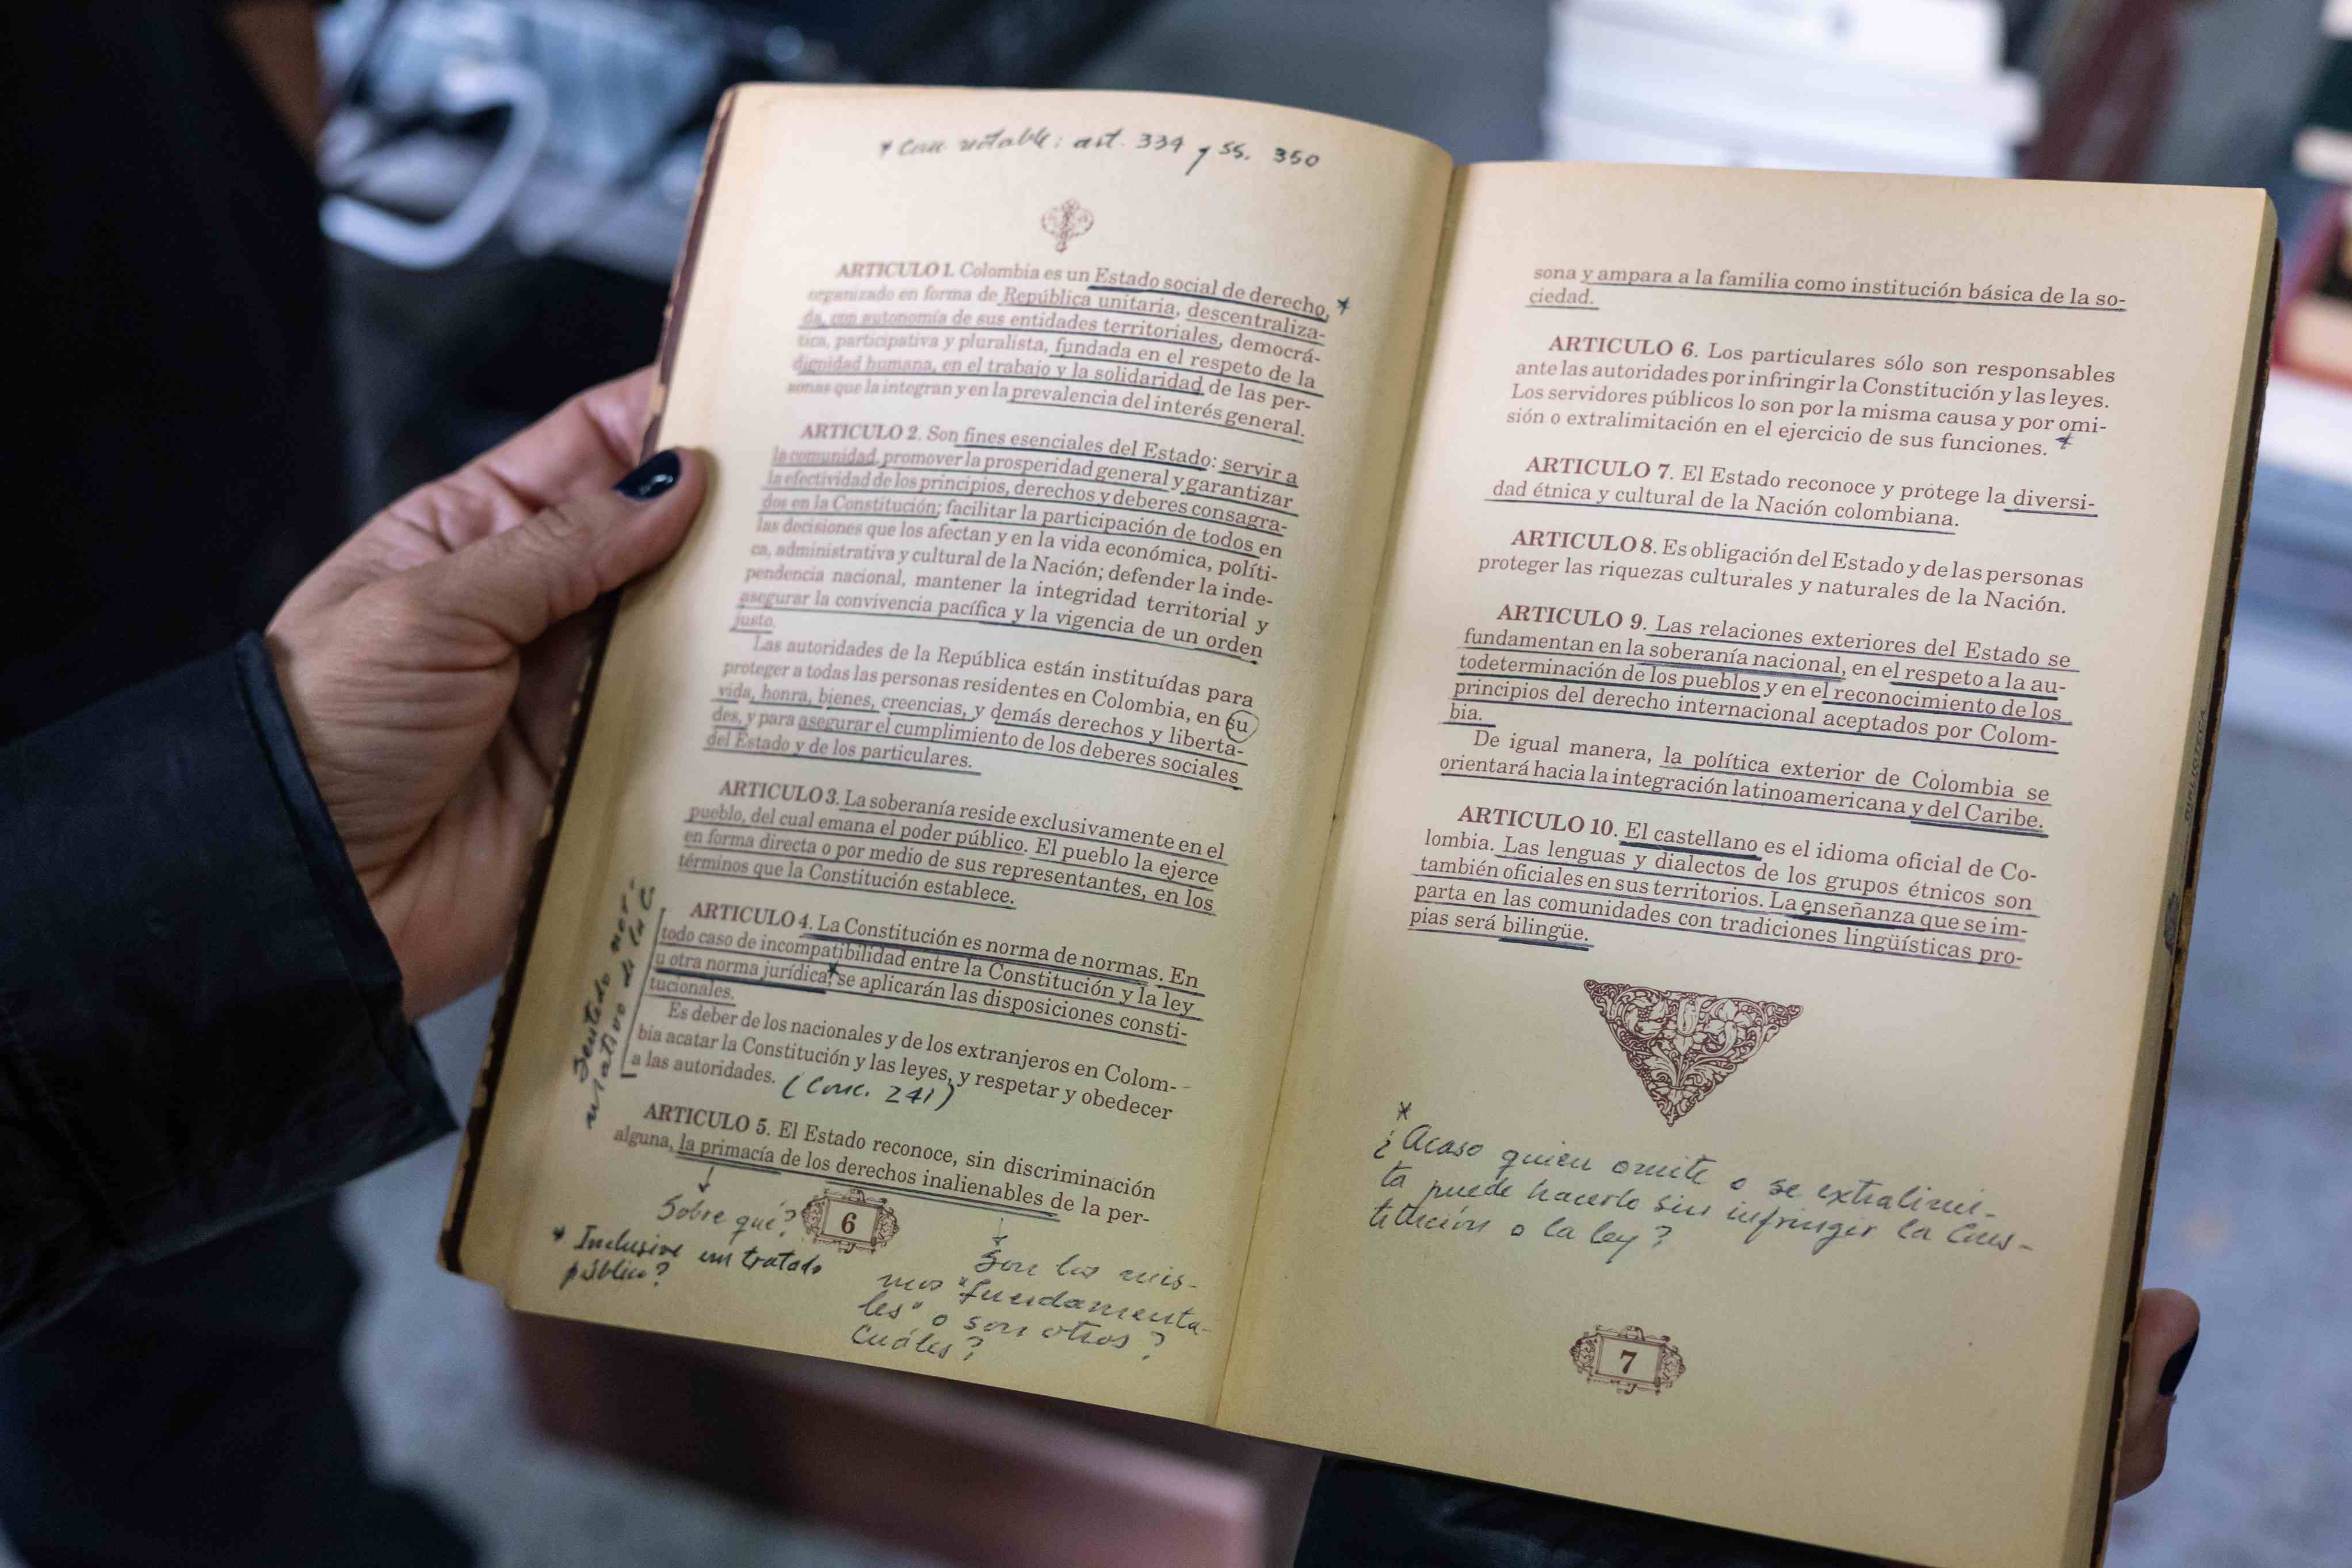 * Conc. notable: art. 334 y ss. 350
ARTICULO 1. Colombia es un Estado social de derecho, *
organizado en forma de República unitaria, descentraliza-
da, con autonomía de sus entidades territoriales, democrá-
tica, participativa y pluralista, fundada en el respeto de la
dignidad humana, en el trabajo y la solidaridad de las per-
sonas que la integran y en la prevalencia del interés general.
ARTICULO 2. Son fines esenciales del Estado: servir a
la comunidad, promover la prosperidad general y garantizar
la efectividad de los principios, derechos y deberes consagra-
dos en la Constitución; facilitar la participación de todos en
las decisiones que los afectan y en la vida económica, políti-
ca, administrativa y cultural de la Nación; defender la inde-
pendencia nacional, mantener la integridad territorial y
asegurar la convivencia pacífica y la vigencia de un orden
justo.
Las autoridades de la República están instituídas para
proteger a todas las personas residentes en Colombia, en su
vida, honra, bienes, creencias, y demás derechos y liberta-
des, y para asegurar el cumplimiento de los deberes sociales
del Estado y de los particulares.
ARTICULO 3. La soberanía reside exclusivamente en el
pueblo, del cual emana el poder público. El pueblo la ejerce
en forma directa o por medio de sus representantes, en los
términos que la Constitución establece.
ARTICULO 4. La Constitución es norma de normas. En
todo caso de incompatibilidad entre la Constitución y la ley
u otra norma jurídica,* se aplicarán las disposiciones consti-
tucionales.
Es deber de los nacionales y de los extranjeros en Colom-
bia acatar la Constitución y las leyes, y respetar y obedecer
a las autoridades. (Conc. 241)
Sentido nor-
mativo de la C
ARTICULO 5. El Estado reconoce, sin discriminación
alguna, la primacía de los derechos inalienables de la per-
Sobre qué?
6
* Inclusive un tratado
público?
Son los mis-
mos "fundamenta-
les" o son otros?
Cuáles?
sona y ampara a la familia como institución básica de la so-
ciedad.
ARTICULO 6. Los particulares sólo son responsables
ante las autoridades por infringir la Constitución y las leyes.
Los servidores públicos lo son por la misma causa y por omi-
sión o extralimitación en el ejercicio de sus funciones. *
ARTICULO 7. El Estado reconoce y protege la diversi-
dad étnica y cultural de la Nación colombiana.
ARTICULO 8. Es obligación del Estado y de las personas
proteger las riquezas culturales y naturales de la Nación.
ARTICULO 9. Las relaciones exteriores del Estado se
fundamentan en la soberanía nacional, en el respeto a la au-
todeterminación de los pueblos y en el reconocimiento de los
principios del derecho internacional aceptados por Colom-
bia.
De igual manera, la política exterior de Colombia se
orientará hacia la integración latinoamericana y del Caribe.
ARTICULO 10. El castellano es el idioma oficial de Co-
lombia. Las lenguas y dialectos de los grupos étnicos son
también oficiales en sus territorios. La enseñanza que se im-
parta en las comunidades con tradiciones lingüísticas pro-
pias será bilingüe.
*
¿Acaso quien omite o se extralimi-
ta puede hacerlo sin infringir la Cons-
titución o la ley?
7
BIBLIOTECA